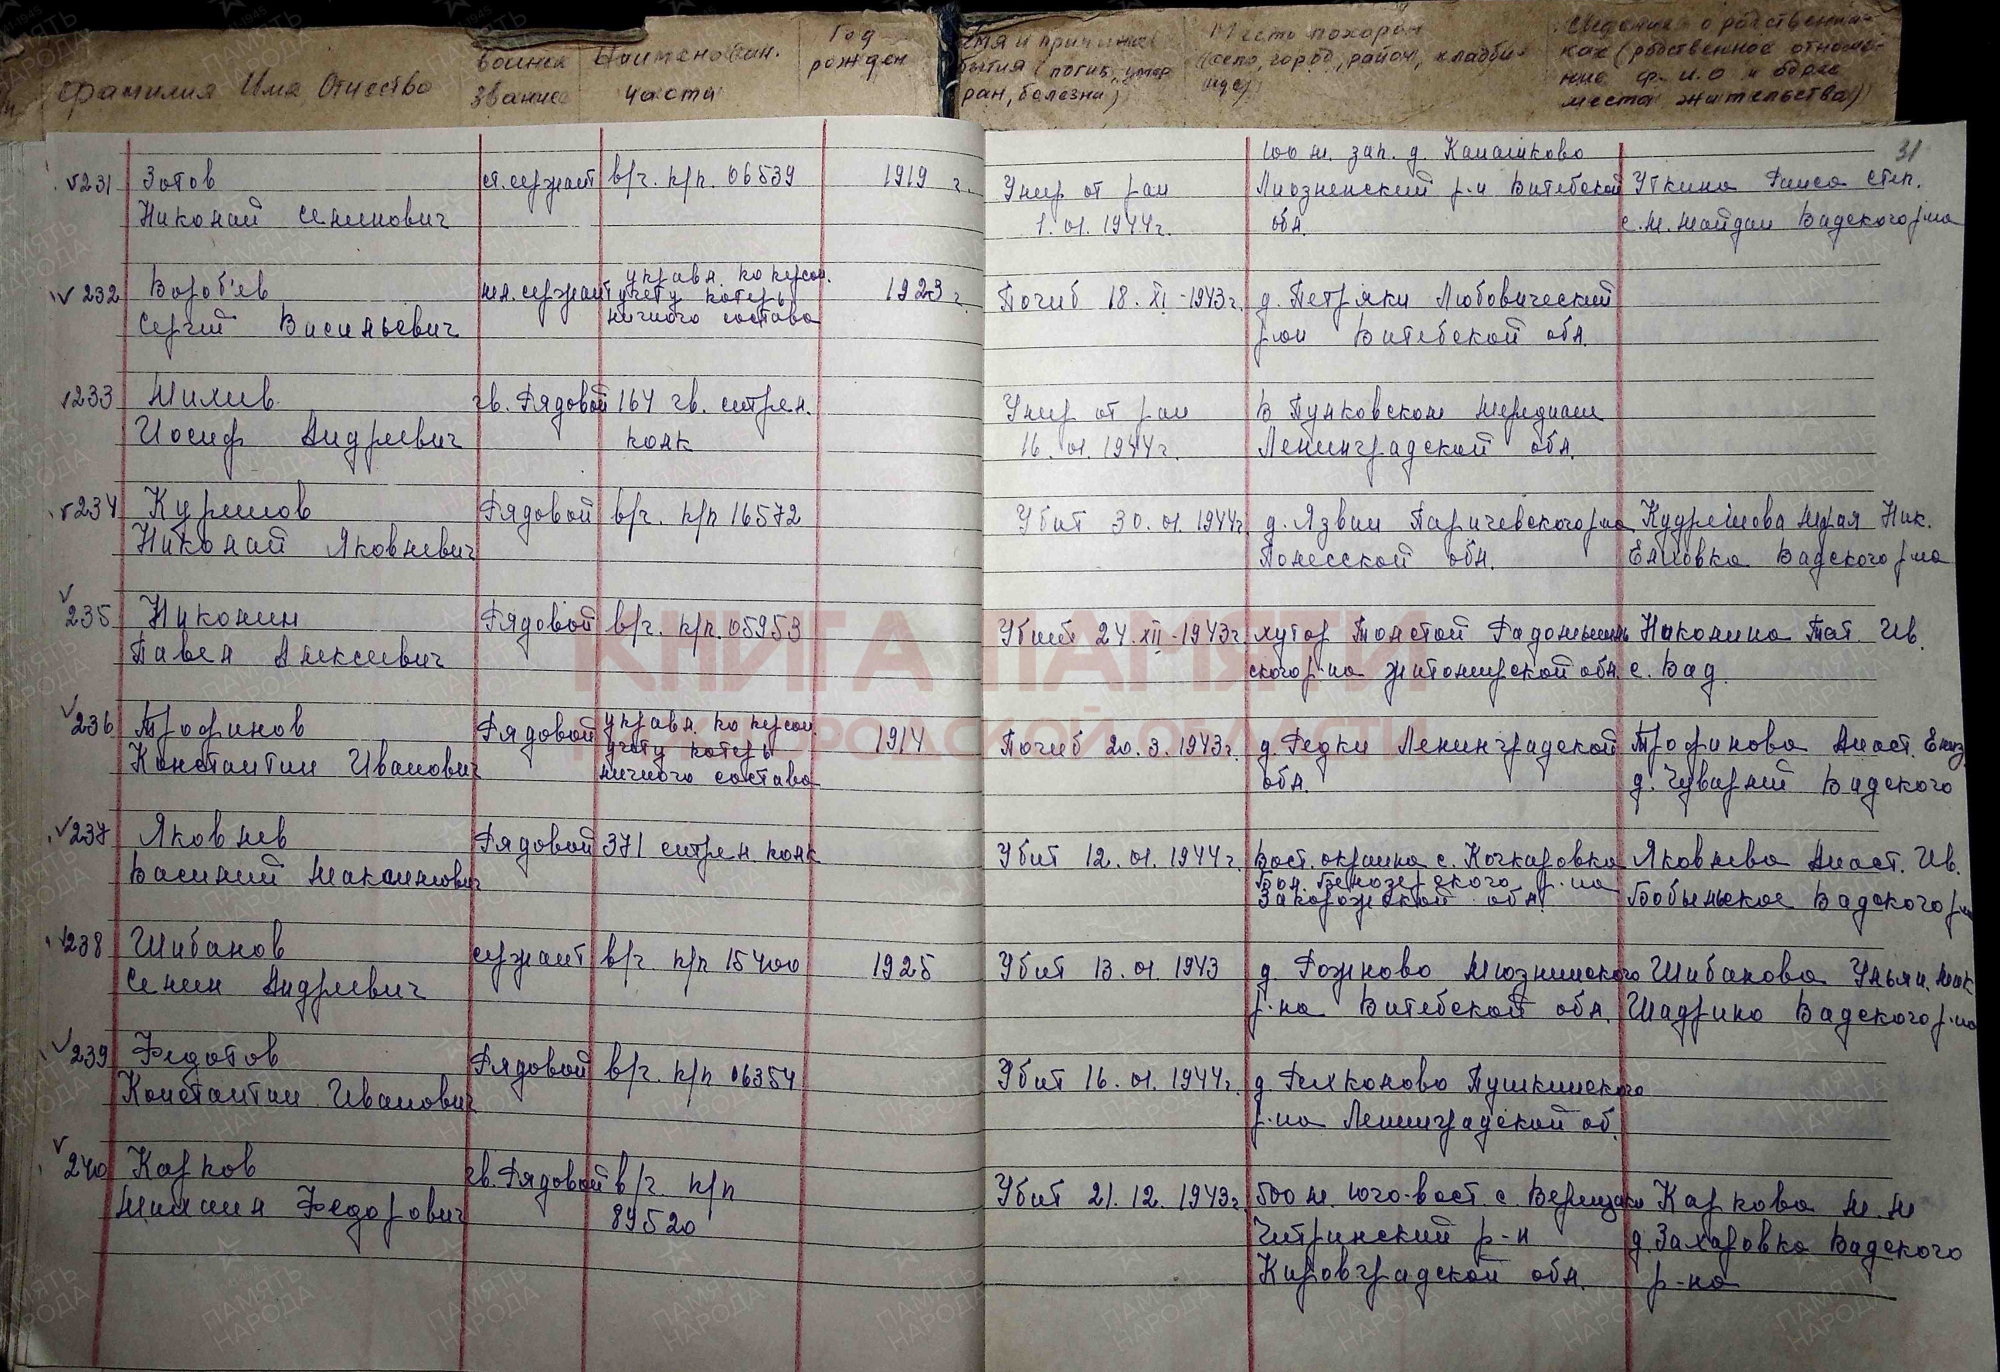 Фамилия Имя Отчество
воинск звание
Наименован. части
Год рожден
(погиб, умер
ран, болезни)
Место похорон
(село, город, район, кладби-
ще)
Сведения о родственни-
ках (родственное отноше-
ние ф.и.о и адрес
места жительства)
31
231 Зотов ст. сержант в/ч. п/п. 06539 1919 г. Умер от ран 100 м. зап. д.
Николай Семенович 1.01.1944г. Лиозненский р-н Витебской обл. Уткина Раиса Степ.
с. М. Майдан Вадского р-на
232 Вороб'ев мл. сержант управл. по персон. 1923 г. Погиб 18. XI -1943г. д. Петряки Любовический
Сергей Васильевич учету потерь личного состава р-он Витебской обл.
233 Михеев гв. Рядовой 164 гв. стрел. Умер от ран В Пулковском Меридиане
Иосиф Андреевич полк 16.01.1944г. Ленинградской обл.
234 Рядовой в/ч. п/п 16572 Убит 30.01.1944г. д. Язвин Паричевского р-на
Николай Яковлевич Полесской обл. Ник.
Елховка Вадского р-на
235 Николин Рядовой в/ч. п/п. 05953 Убит 24. XII -1943г. хутор Толстой Радомышль Тат. Ив.
Павел Алексеевич ского р-на Житомирской обл. с. Вад.
236 Трофимов Рядовой управл. по персон. 1914 Погиб 20.3.1943г. д. Редки Ленинградской Трофимова Анаст. Ениз.
Константин Иванович учету потерь личного состава обл. д. Чуварлей Вадского
237 Яковлев Рядовой 371 стрел. полк Убит 12.01.1944г. Вост. окраина с. Качкаровка Яковлева Анаст. Ив.
Василий Максимович Бел. Белозерского р-на Запорожской обл. Бобыльское Вадского р-на
238 Шибанов сержант в/ч. п/п 15400 1925 Убит 13.01.1943 д. Рожново Шибанова Ульян. Мак
Семен Андреевич р-на Витебской обл. Шадрино Вадского р-на
239 Федотов Рядовой в/ч. п/п 06354 Убит 16.01.1944г. д. Пушкинского
Константин Иванович р-на Ленинградской об.
240 Карпов гв. Рядовой в/ч. п/п Убит 21.12.1943г. 500 м. юго-вост. с. Карпова М.М
Михаил Федорович 89520 р-н д. Захаровка Вадского
Кировградской обл. р-на
КНИГА ПАМЯТИ
НИЖЕГОРОДСКОЙ ОБЛАСТИ
ПАМЯТЬ НАРОДА